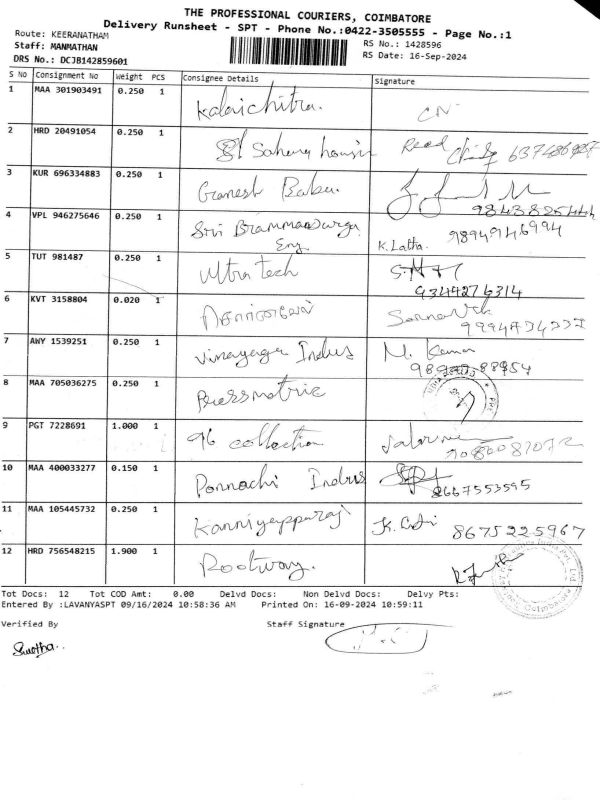 THE PROFESSIONAL COURIERS, COIMBATORE
Delivery Runsheet - SPT - Phone No.:0422-3505555 - Page No.:1
Route: KEERANATHAM
Staff: MANMATHAN
DRS No.: DCJB142859601
RS No.: 1428596
RS Date: 16-Sep-2024
S No Consignment No Weight PCS Consignee Details Signature
1 MAA 301903491 0.250 1 Kalaichitra. CN
2 HRD 20491054 0.250 1 Sahana
3 KUR 696334883 0.250 1 Ganesh Babu.
9843825444
4 VPL 946275646 0.250 1 Sri
Eng K.Latha. 9894946994
5 TUT 981487 0.250 1 Ultra tech
9344276314
6 KVT 3158804 0.020 1
7 AWY 1539251 0.250 1 Vinayaga Indus M. Kumar
8 MAA 705036275 0.250 1 Pressmatric
9 PGT 7228691 1.000 1 96 collection
10 MAA 400033277 0.150 1 Ponnachi Indus
8667553595
11 MAA 105445732 0.250 1 Kanniyapparaj 8675225967
12 HRD 756548215 1.900 1 Rootway.
Tot Docs: 12 Tot COD Amt: 0.00 Delvd Docs: Non Delvd Docs: Delvy Pts:
Entered By :LAVANYASPT 09/16/2024 10:58:36 AM Printed On: 16-09-2024 10:59:11
Verified By Staff Signature